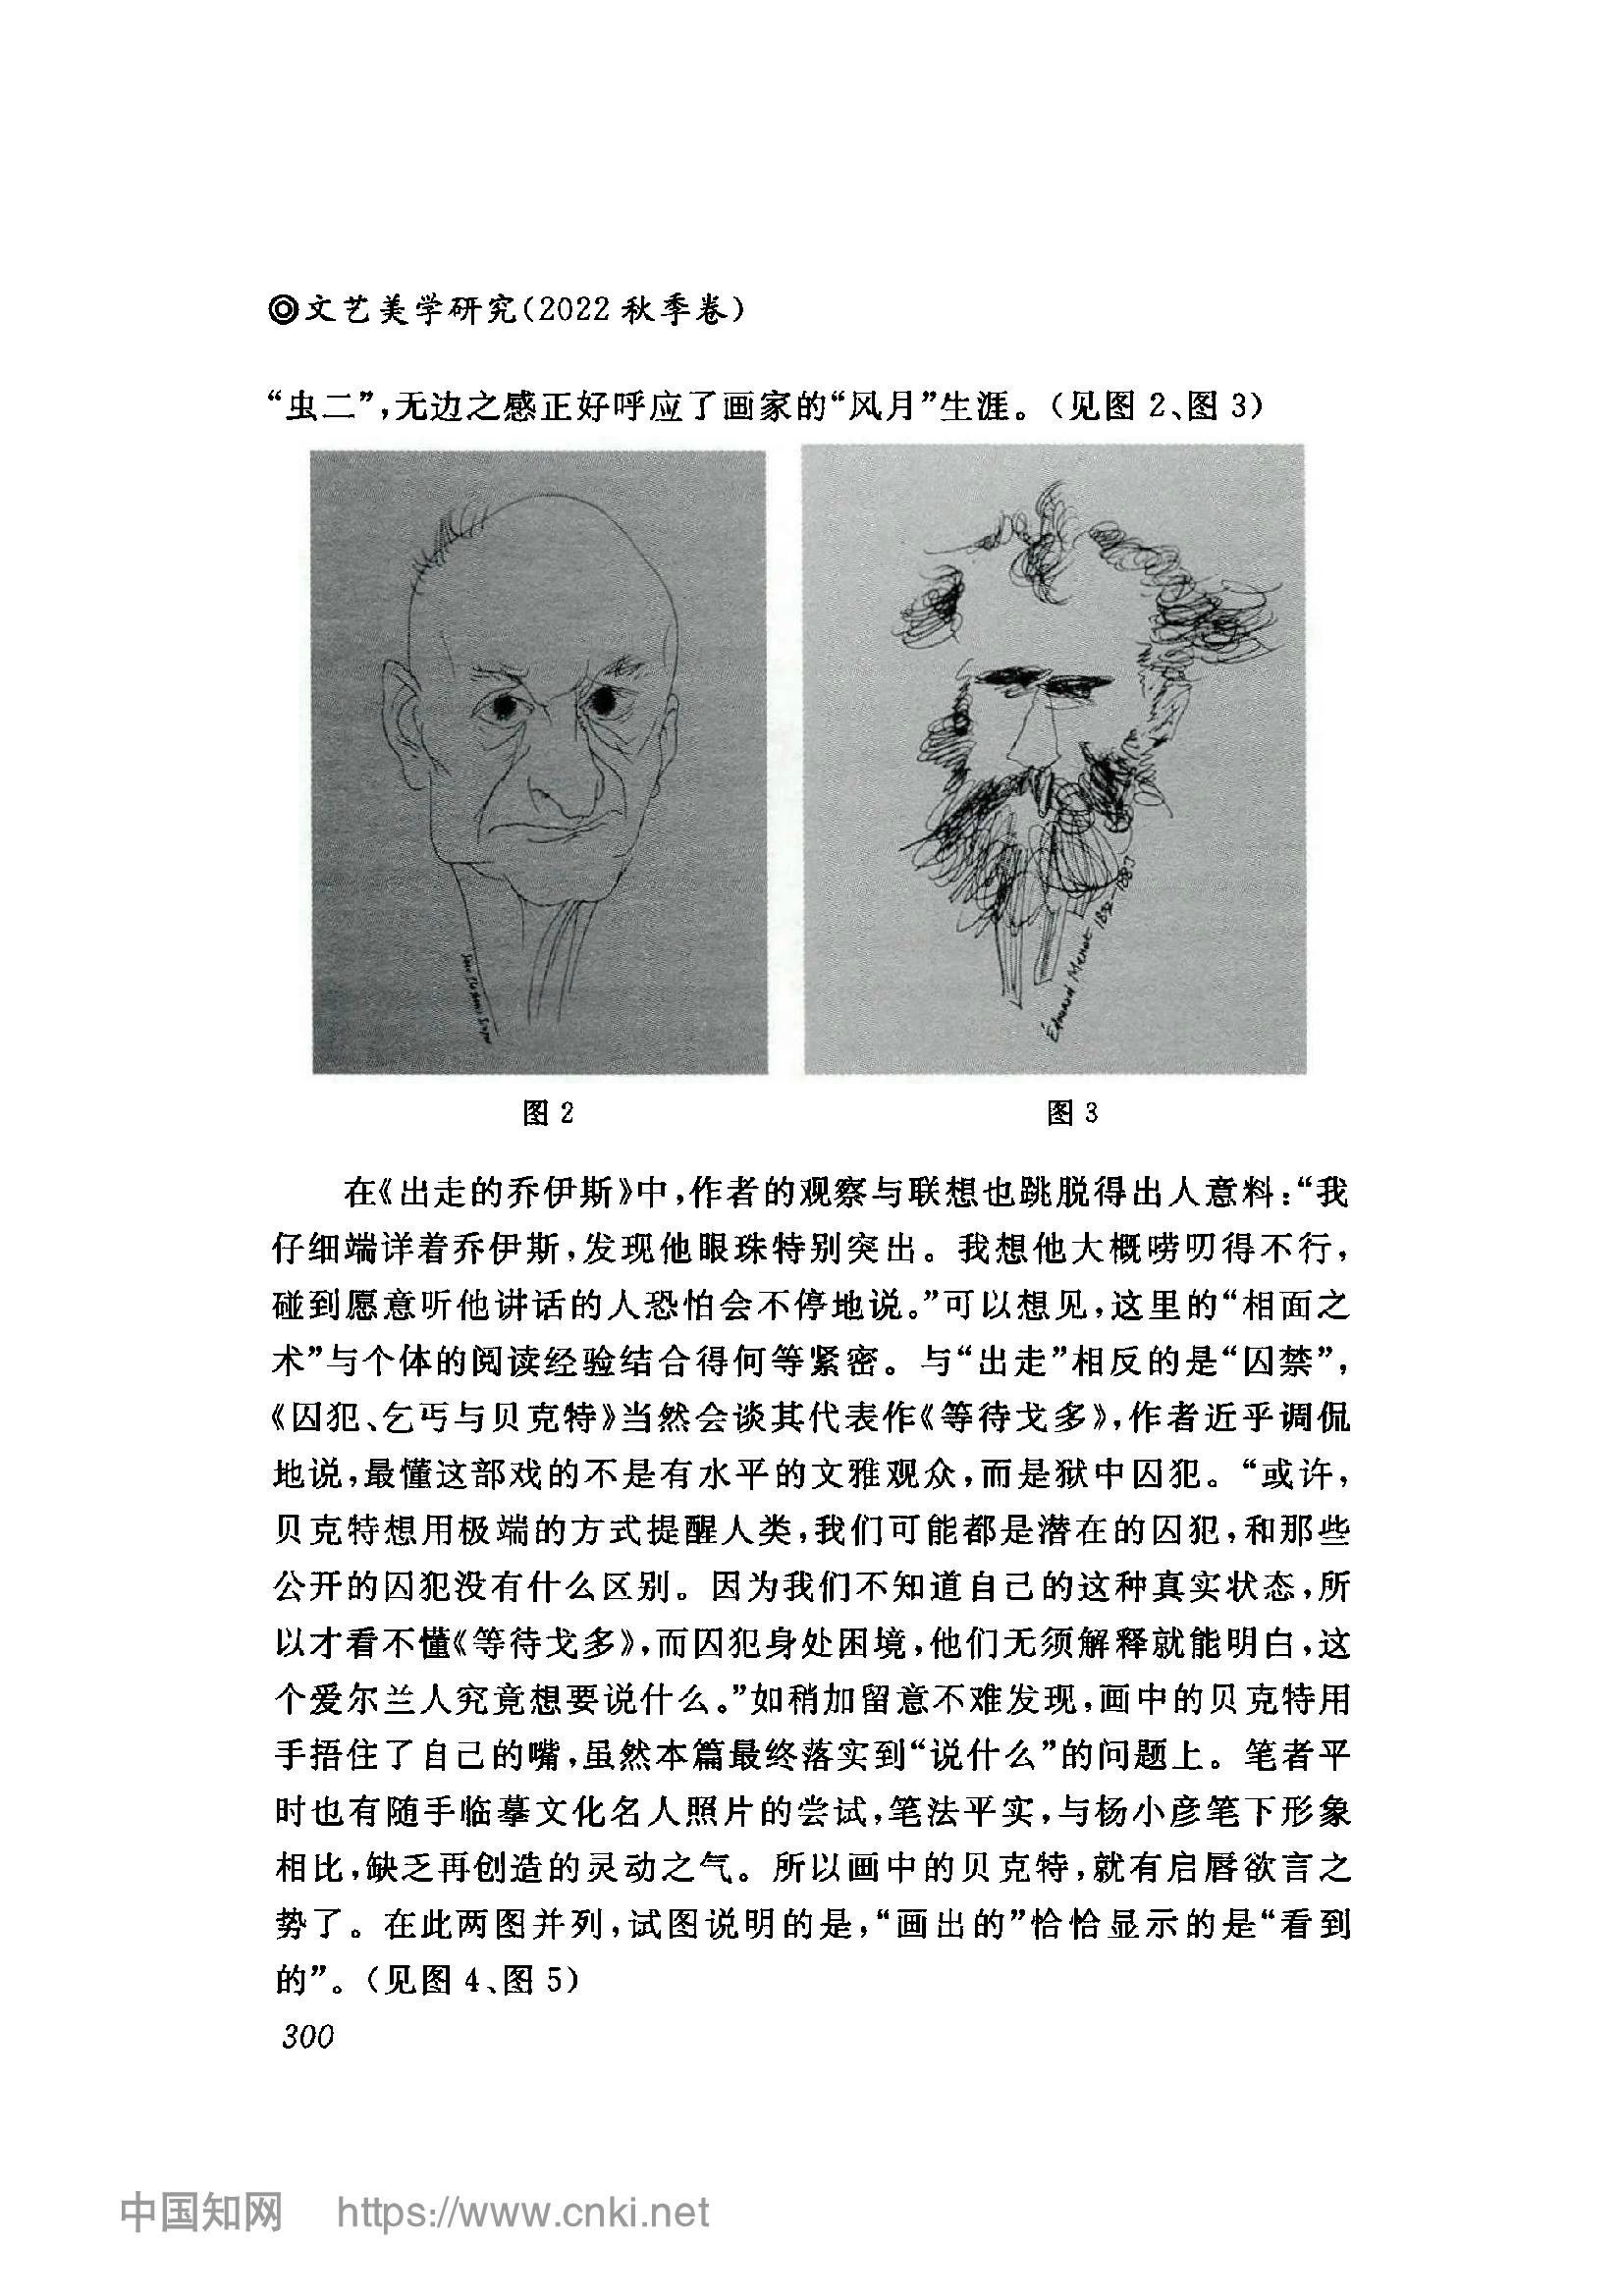 ◎文艺美学研究(2022 秋季卷)
“虫二”,无边之感正好呼应了画家的“风月”生涯。(见图 2、图 3)
Édouard Manet 1832—1883
图 2
图 3
在《出走的乔伊斯》中,作者的观察与联想也跳脱得出人意料:“我
仔细端详着乔伊斯,发现他眼珠特别突出。我想他大概唠叨得不行,
碰到愿意听他讲话的人恐怕会不停地说。”可以想见,这里的“相面之
术”与个体的阅读经验结合得何等紧密。与“出走”相反的是“囚禁”,
《囚犯、乞丐与贝克特》当然会谈其代表作《等待戈多》,作者近乎调侃
地说,最懂这部戏的不是有水平的文雅观众,而是狱中囚犯。“或许,
贝克特想用极端的方式提醒人类,我们可能都是潜在的囚犯,和那些
公开的囚犯没有什么区别。因为我们不知道自己的这种真实状态,所
以才看不懂《等待戈多》,而囚犯身处困境,他们无须解释就能明白,这
个爱尔兰人究竟想要说什么。”如稍加留意不难发现,画中的贝克特用
手捂住了自己的嘴,虽然本篇最终落实到“说什么”的问题上。笔者平
时也有随手临摹文化名人照片的尝试,笔法平实,与杨小彦笔下形象
相比,缺乏再创造的灵动之气。所以画中的贝克特,就有启唇欲言之
势了。在此两图并列,试图说明的是,“画出的”恰恰显示的是“看到
的”。(见图 4、图 5)
300
中国知网 https://www.cnki.net